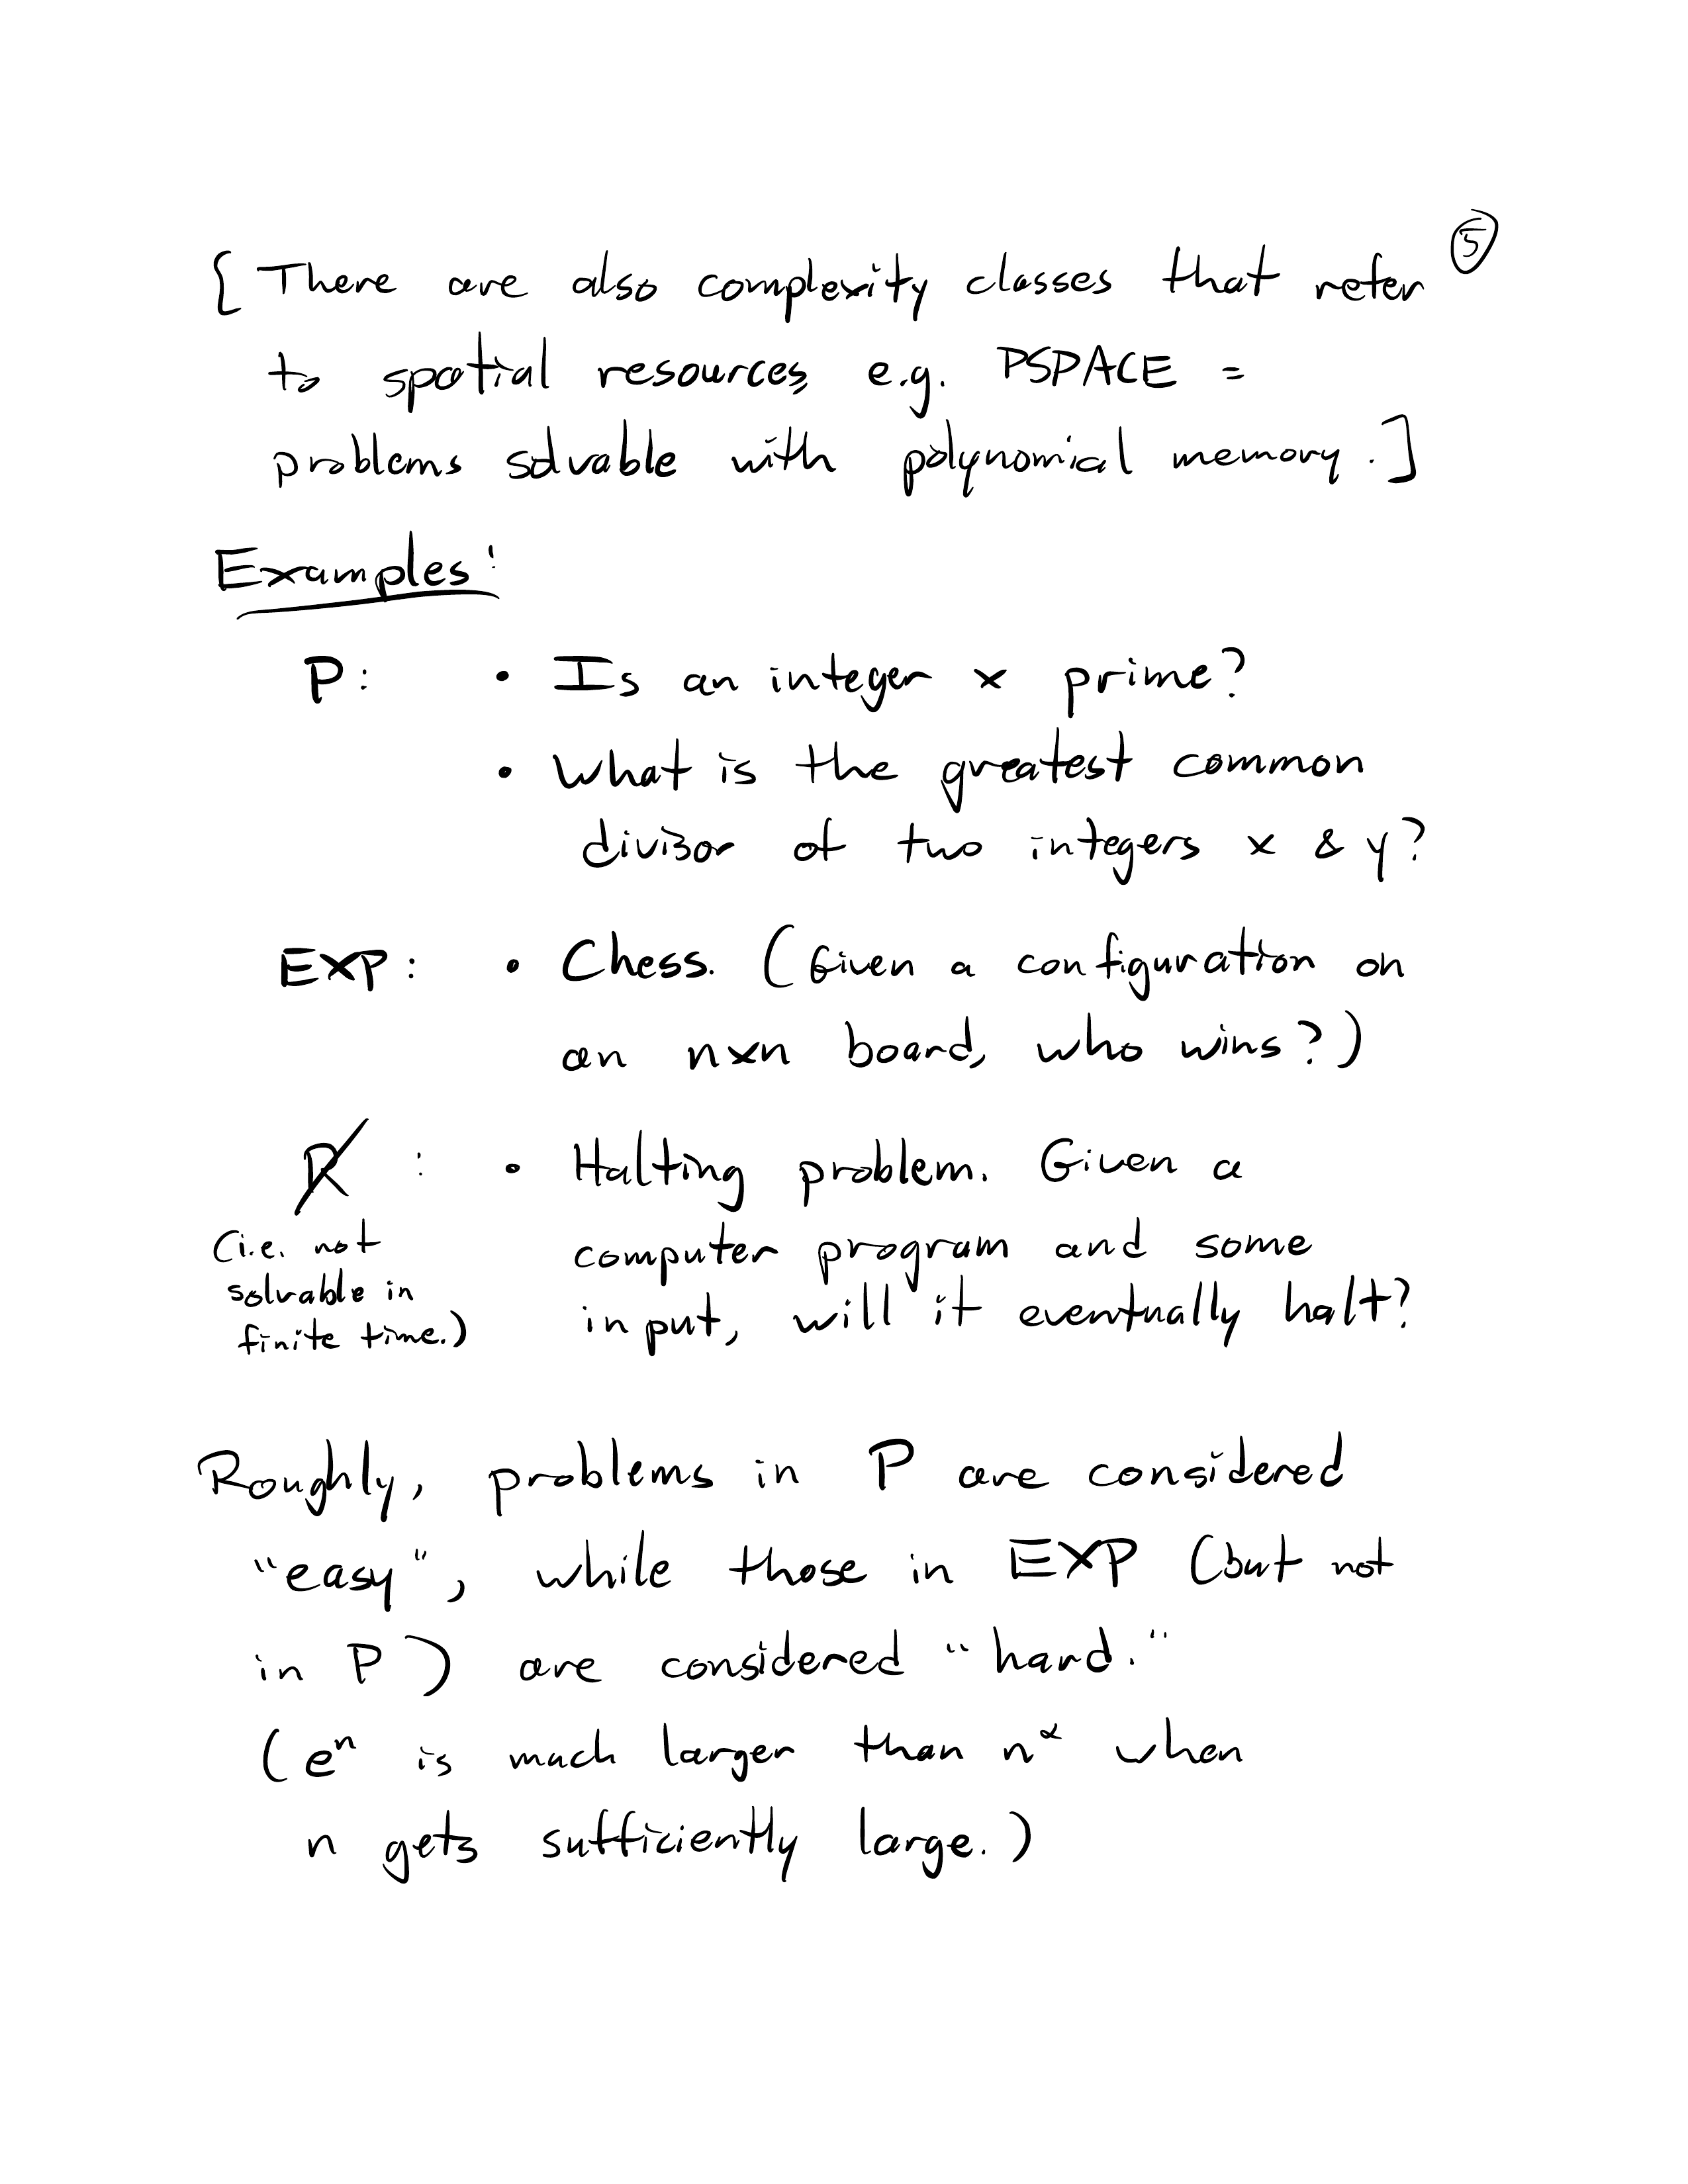 ⑤
[There are also complexity classes that refer
to spatial resources, e.g. PSPACE =
problems solvable with polynomial memory.]
Examples:
P: • Is an integer x prime?
• What is the greatest common
divisor of two integers x & y?
EXP: • Chess. (Given a configuration on
an nxn board, who wins?)
R̸ : • Halting problem. Given a
(i.e. not
solvable in
finite time.)
computer program and some
input, will it eventually halt?
Roughly, problems in P are considered
"easy", while those in EXP (but not
in P) are considered "hard."
(eⁿ is much larger than n^α when
n gets sufficiently large.)